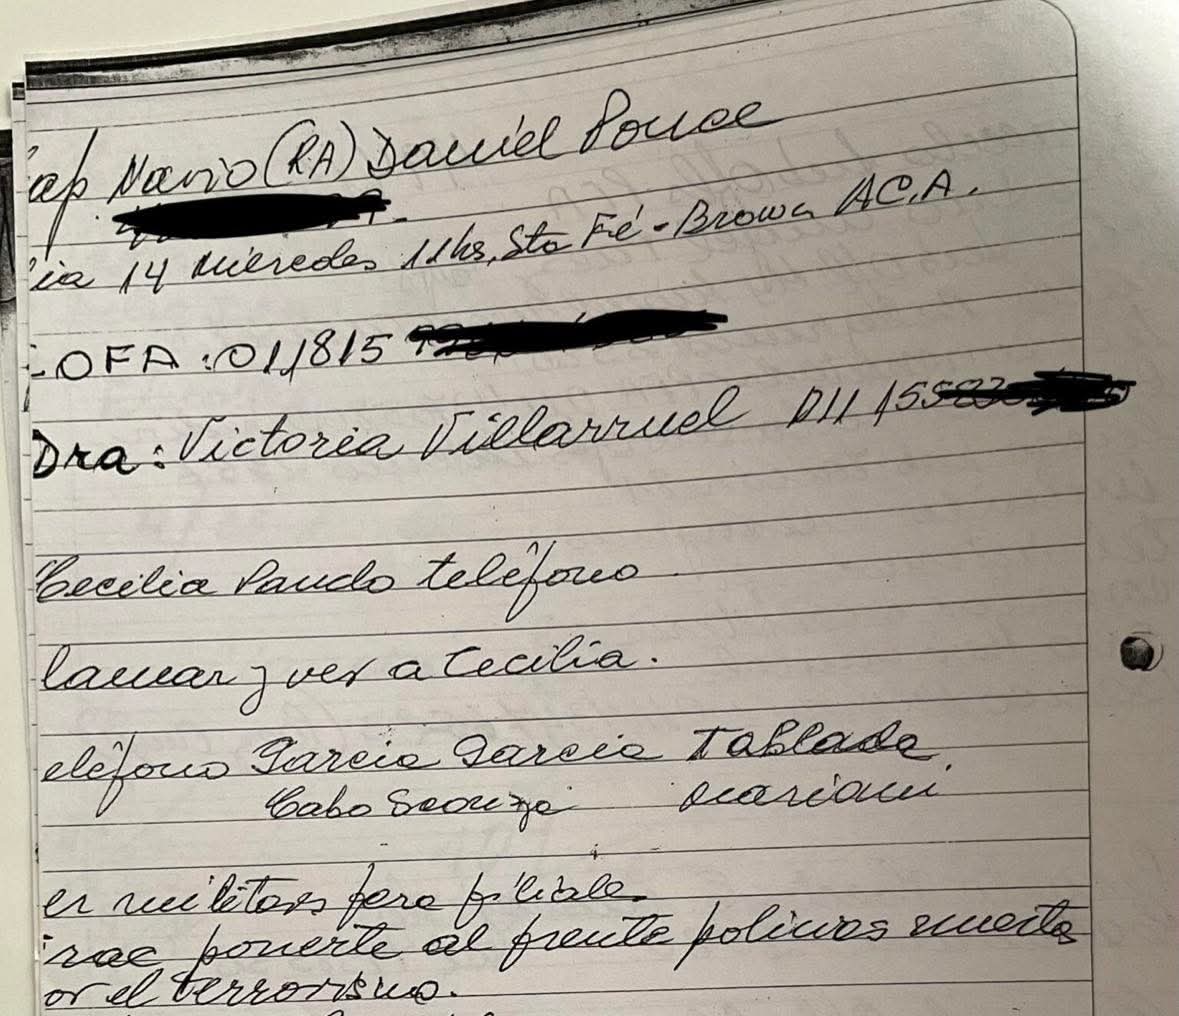 ap Navio (RA) Daniel Ponce
ia 14 miercoles 11hs, Sta Fé - Brown A.C.A.
OFA : 011815
Dra : Victoria Villarruel 011 1558
Cecilia Pando teléfono
lamar y ver a Cecilia.
eléfono Garcia Garcia Tablada
Cabo Mariani
er militares para filiale.
ponerte al frente policias muerto
or el terrorismo.